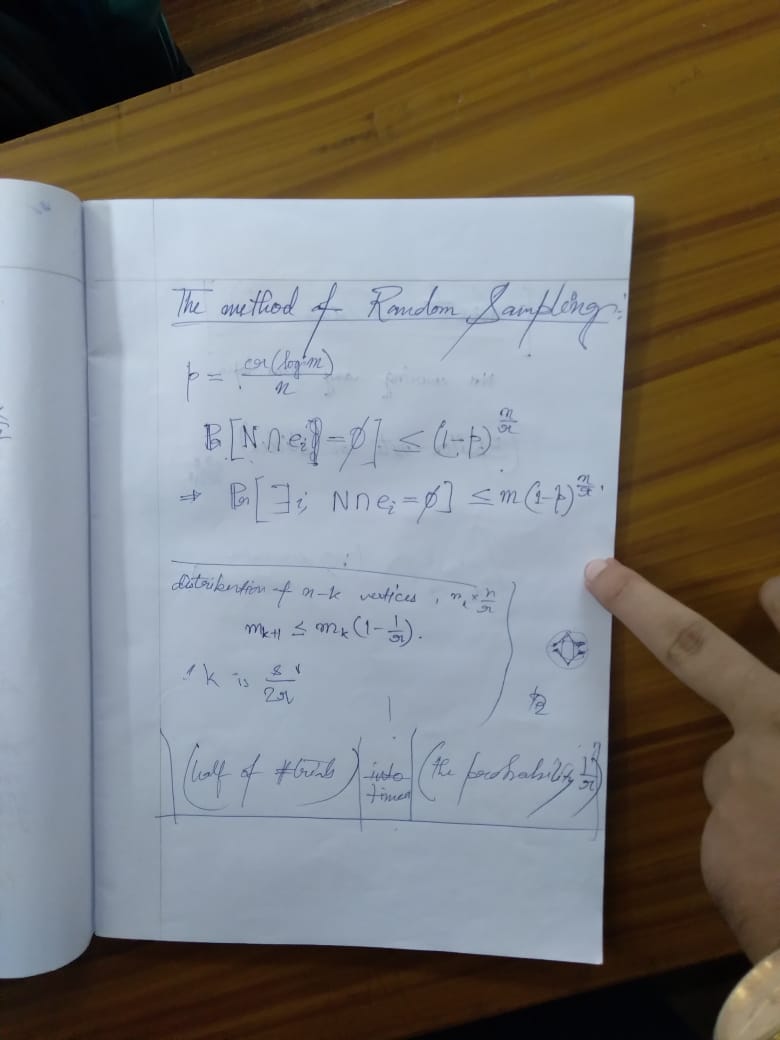 The method of Random Sampling:
p = cr(log m)/n
Pr[N ∩ e_i = ∅] ≤ (1-p)^{n/r}
⇒ Pr[∃i, N∩e_i = ∅] ≤ m(1-p)^{n/r}.
distribution of n-k vertices,
m_{k+1} ≤ m_k(1 - 1/r).
k is s/2r
(half of #trials) into times (the probability 1/r)